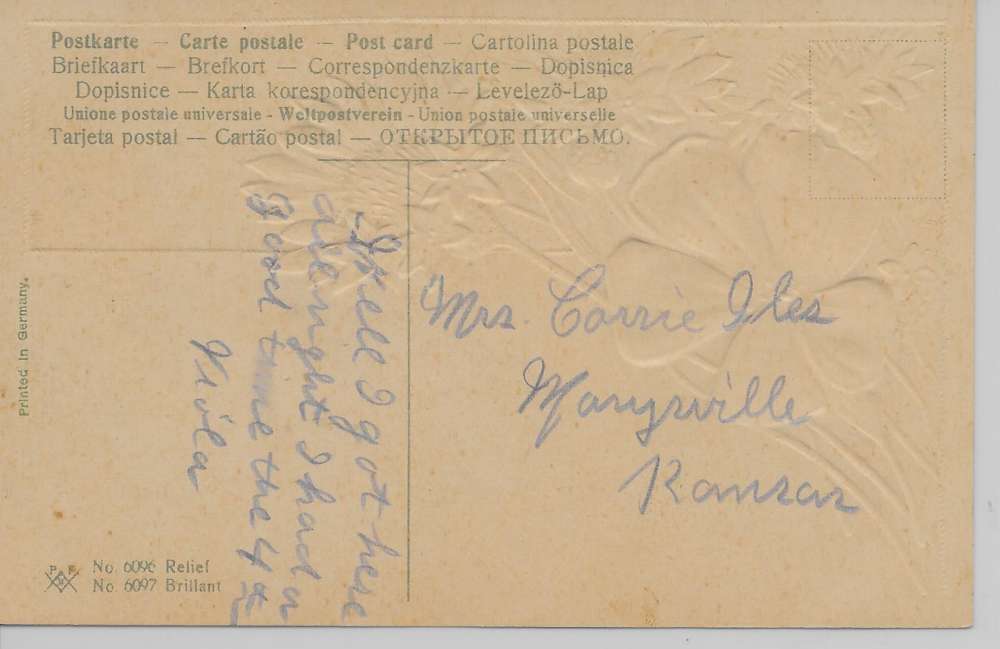 Postkarte — Carte postale — Post card — Cartolina postale
Briefkaart — Brefkort — Correspondenzkarte — Dopisnica
Dopisnice — Karta korespondencyjna — Levelező-Lap
Unione postale universale - Weltpostverein - Union postale universelle
Tarjeta postal — Cartão postal — ОТКРЫТОЕ ПИСЬМО.
Well I got here
all right I had a
Good time the 4th
Viola
Mrs. Carrie Iles
Marysville
Kansas
Printed in Germany.
P. F. B.
No. 6096 Relief
No. 6097 Brillant